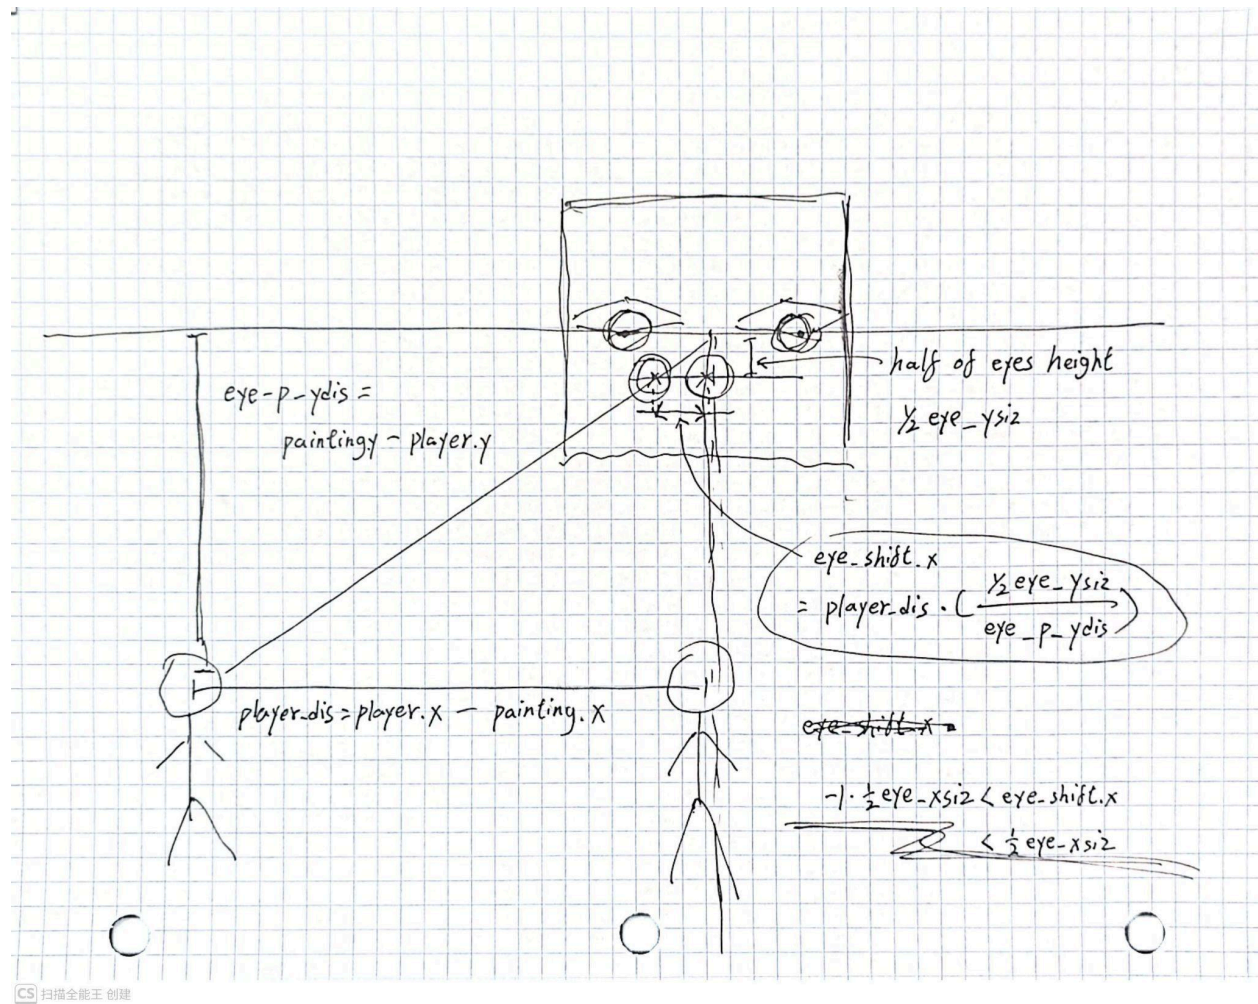 eye-p-ydis =
paintingy - player.y
half of eyes height
½ eye_ysiz
eye_shift.x
= player_dis · ( ½ eye_ysiz / eye_p_ydis )
player_dis = player.x - painting.x
eye_shift.x =
-1 · ½ eye_xsiz < eye_shift.x
< ½ eye_xsiz
CS 扫描全能王 创建